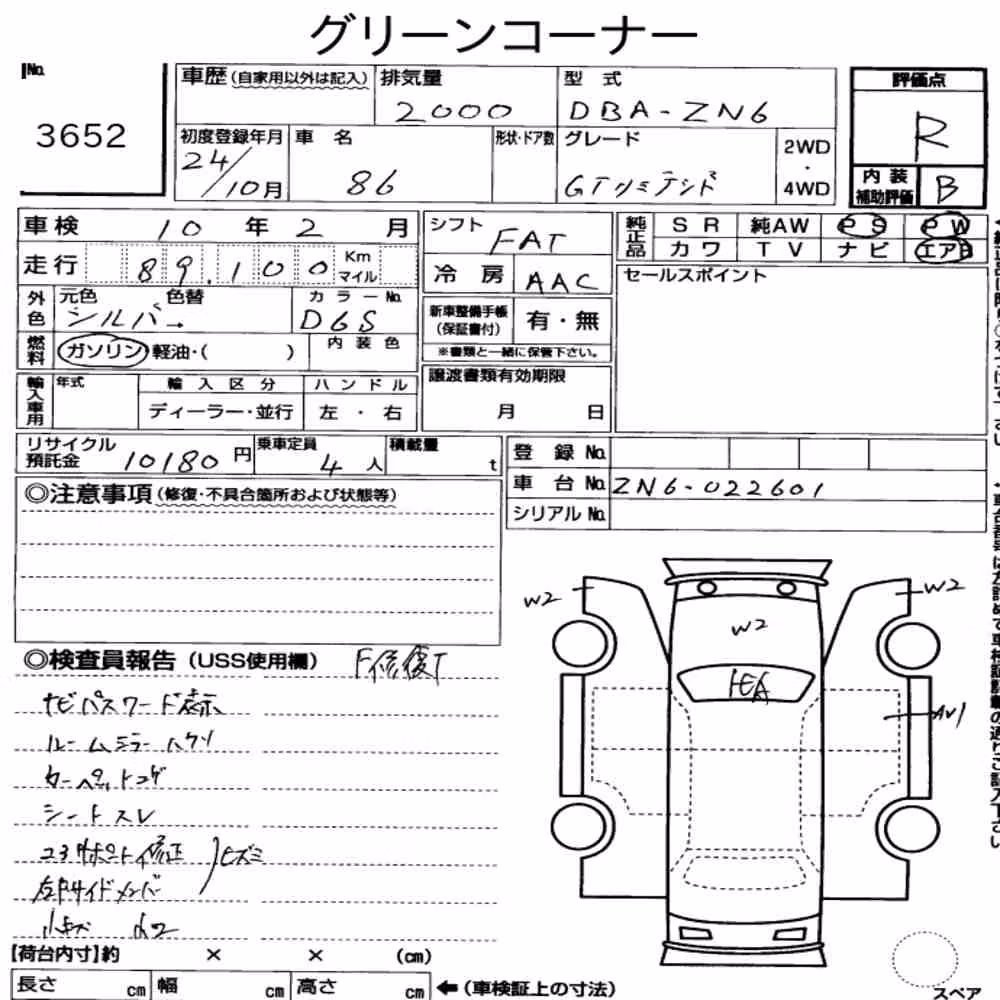 グリーンコーナー
No.
3652
車歴 (自家用以外は記入)
排気量
2000
型 式
DBA-ZN6
評価点
R
内装補助評価
B
初度登録年月
24/10月
車 名
86
形状・ドア数
グレード
GTリミテッド
2WD
・
4WD
車検 10年 2月
走行 89,100 Km マイル
外色
元色 色替
シルバー
カラーNo.
D6S
燃料
ガソリン 軽油・( )
内装色
輸入車用
年式
輸入区分
ディーラー・並行
ハンドル
左 ・ 右
シフト
FAT
冷房
AAC
新車整備手帳
(保証書付)
有・無
※書類と一緒に保管下さい。
譲渡書類有効期限
月 日
純正品
SR 純AW PS PW
カワ TV ナビ エアB
セールスポイント
リサイクル預託金 10180円
乗車定員
4人
積載量
t
登録No.
車台No. ZN6-022601
シリアルNo.
◎注意事項 (修復・不具合箇所および状態等)
◎検査員報告 (USS使用欄) F修復有
ナビパスワード表示
ルームミラーハクリ
カーペットコゲ
シートスレ
コアサポート修正
左右サイドメンバー
ヒズミ
小キズ 小凹
W2
W2
W2
AV1
【荷台内寸】約 × × (cm)
長さ cm 幅 cm 高さ cm ←(車検証上の寸法)
スペア